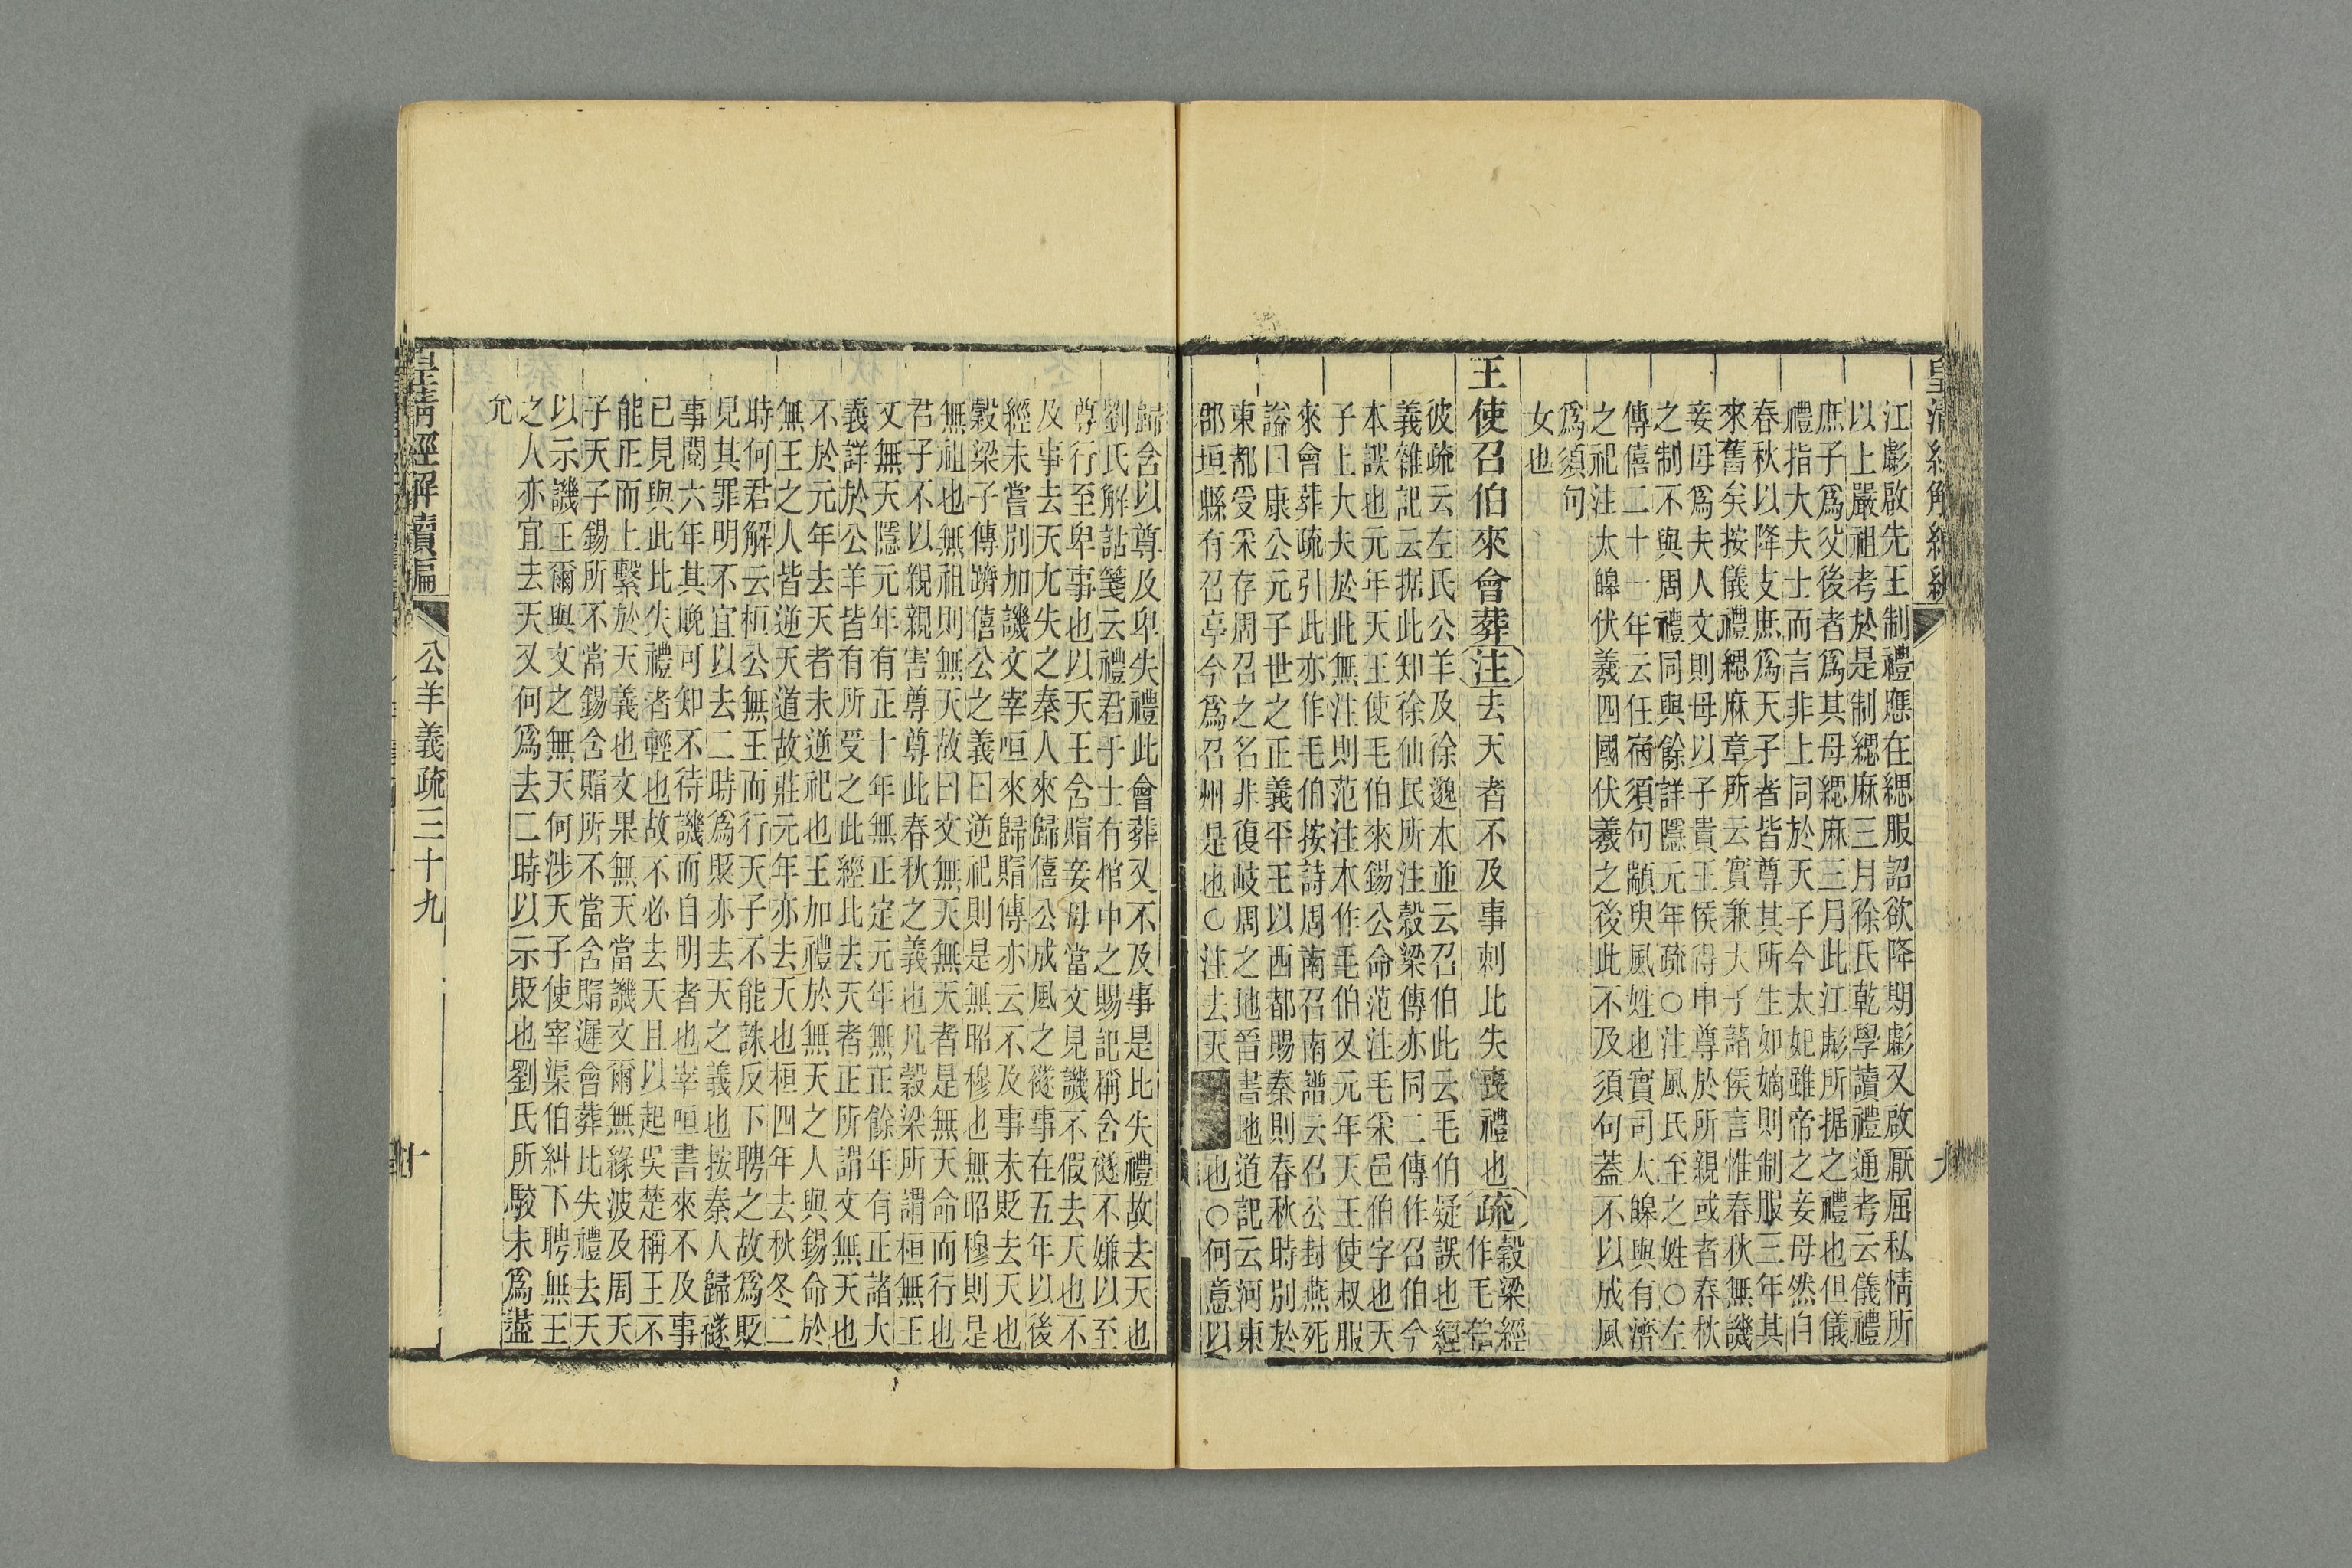 江彪啟先王制禮應在緦服詔欲降期彪又啟厭屈私情所
以上嚴祖考於是制緦麻三月徐氏乾學讀禮通考云儀禮
庶子爲父後者爲其母緦麻三月此江彪所据之禮也但儀
禮指大夫士而言非上同於天子今太妃雖帝之妾母然自
春秋以降支庶爲天子者皆尊其所生如嫡則制服三年其
來舊矣按儀禮緦麻章所云實兼天子諸侯言惟春秋無譏
妾母爲夫人文則母以子貴王侯得申尊於所親或者春秋
之制不與周禮同與餘詳隱元年疏○注風氏至之姓○左
傳僖二十一年云任宿須句顓臾風姓也實司太皞與有濟
之祀注太皞伏羲四國伏羲之後此不及須句葢不以成風
爲須句
女也
王使召伯來會葬注去天者不及事刺比失喪禮也疏穀梁經
作毛伯
彼疏云左氏公羊及徐邈本並云召伯此云毛伯疑誤也經
義雜記云据此知徐仙民所注穀梁傳亦同二傳作召伯今
本誤也元年天王使毛伯來錫公命范注毛采邑伯字也天
子上大夫於此無注則范注本作毛伯又元年天王使叔服
來會葬疏引此亦作毛伯按詩周南召南譜云召公封燕死
諡曰康公元子世之正義平王以西都賜秦則春秋時別於
東都受采存周召之名非復岐周之地晉書地道記云河東
郡垣縣有召亭今爲召州是也○注去天也○何意以
歸含以尊及卑失禮此會葬又不及事是比失禮故去天也
劉氏解詁箋云禮君于士有棺中之賜記稱含襚不嫌以至
尊行至卑事也以天王含賵妾母當文見譏不假去天也不
及事去天尤失之秦人來歸僖公成風之襚事在五年以後
經未嘗別加譏文宰咺來歸賵傳亦云不及事未貶去天也
穀梁子傳躋僖公之義曰逆祀則是無昭穆也無昭穆則是
無祖也無祖則無天故曰文無天無天者是無天命而行也
君子不以親親害尊尊此春秋之義也凡穀梁所謂桓無王
文無天隱元年有正十年無正定元年無正餘年有正諸大
義詳於公羊皆有所受之此經比去天者正所謂文無天也
不於元年去天者未逆祀也王加禮於無天之人與錫命於
無王之人皆逆天道故莊元年亦去天也桓四年去秋冬二
時何君解云桓公無王而行天子不能誅反下聘之故爲貶
見其罪明不宜以去二時爲貶亦去天之義也按秦人歸襚
事閱六年其晚可知不待譏而自明者也宰咺書來不及事
已見與此比失禮者輕也故不必去天且以起吳楚稱王不
能正而上繫於天義也文果無天當譏文爾無緣波及周天
子天子錫所不當錫含賵所不當含賵遲會葬比失禮去天
以示譏王爾與文之無天何涉天子使宰渠伯糾下聘無王
之人亦宜去天又何爲去二時以示貶也劉氏所駮未爲盡
允
皇清經解續編
公羊義疏三十九
十
九